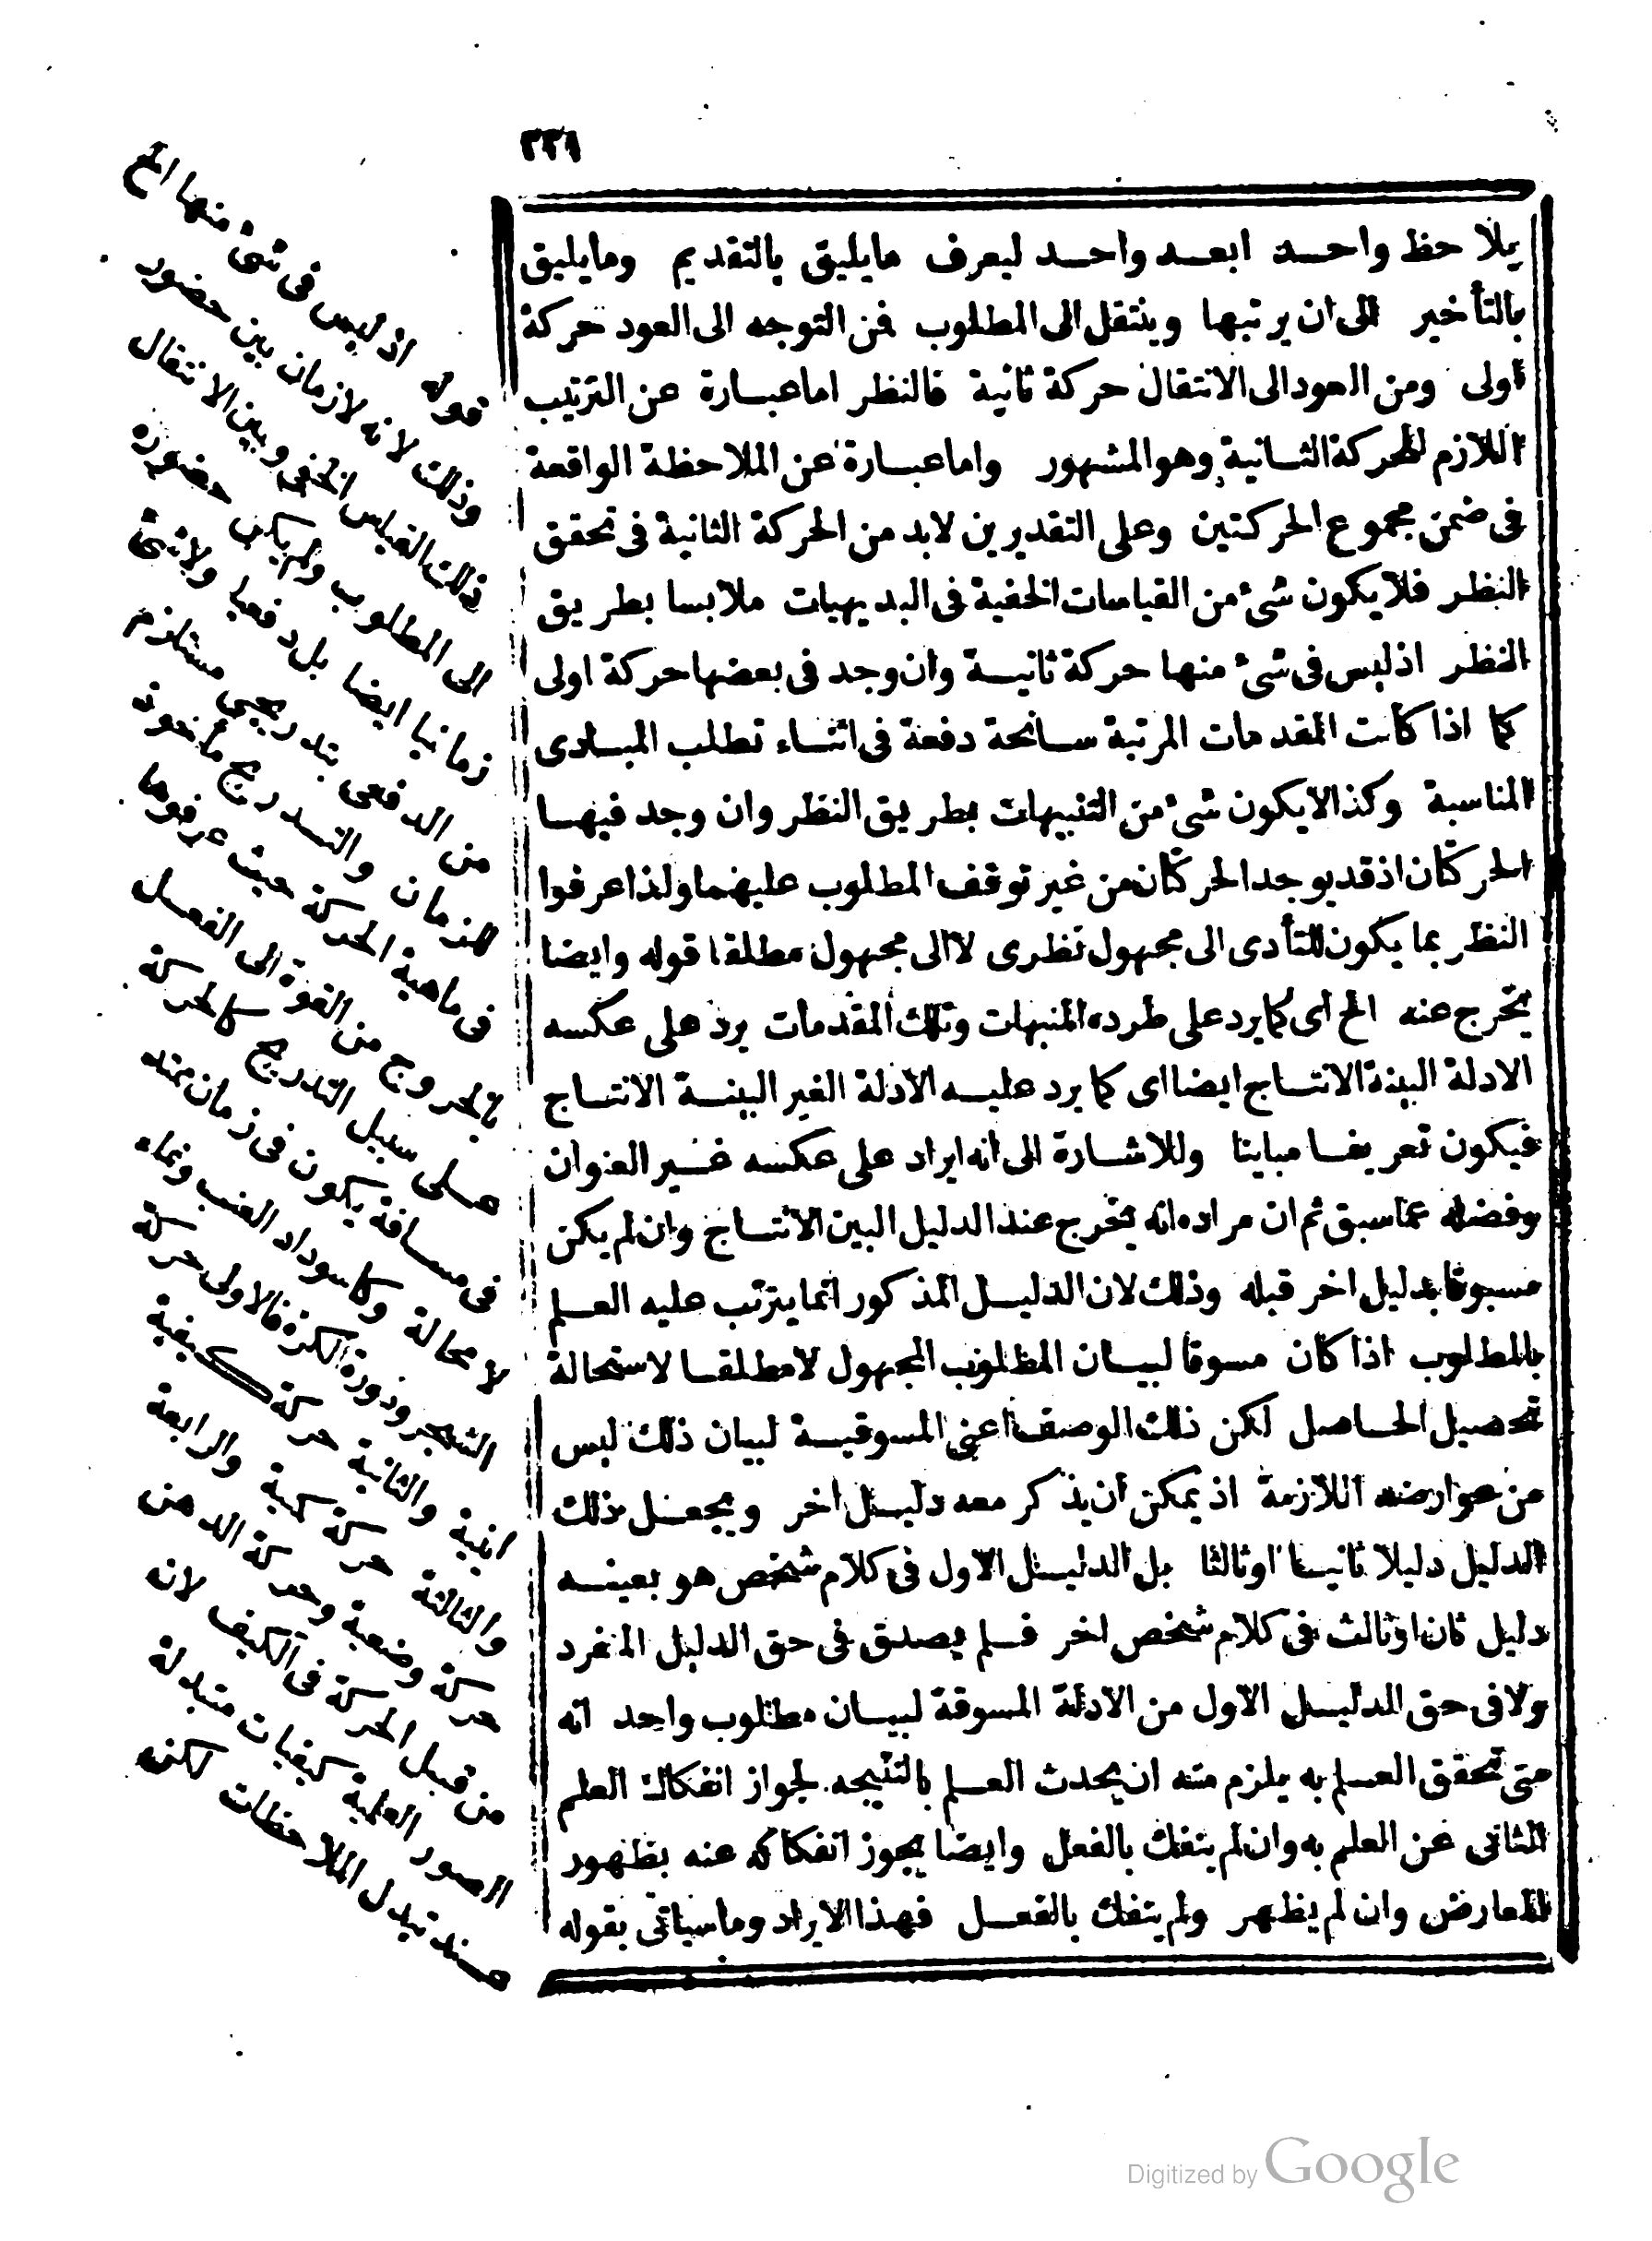 ٣٣١
يلا حظ واحد ابعد واحد ليعرف مايليق بالتقديم ومايليق
بالتأخير الى ان يرتبها وينتقل الى المطلوب فمن التوجه الى العود حركة
أولى ومن العود الى الانتقال حركة ثانية فالنظر اما عبارة عن الترتيب
اللازم للحركة الثانية وهو المشهور واما عبارة عن الملاحظة الواقعة
فى ضمن مجموع الحركتين وعلى التقديرين لابد من الحركة الثانية فى تحقق
النظر فلا يكون شئ من القياسات الخفية فى البديهيات ملابسا بطريق
النظر اذ ليس فى شئ منها حركة ثانية وان وجد فى بعضها حركة اولى
كما اذا كانت المقدمات المرتبة سانحة دفعة فى اثناء تطلب المبادى
المناسبة وكذا لا يكون شئ من التنبيهات بطريق النظر وان وجد فيها
الحركتان اذ قد يوجد الحركتان من غير توقف المطلوب عليهما ولذا عرفوا
النظر بما يكون للتأدى الى مجهول نظرى لا الى مجهول مطلقا قوله وايضا
يخرج عنه الخ اى كما يرد على طرده المنبهات وتلك المقدمات يرد على عكسه
الادلة البينة الانتاج ايضا اى كما يرد عليه الادلة الغير البينة الانتاج
فيكون تعريفا مباينا وللاشارة الى انه ايراد على عكسه غير العنوان
وفضله عما سبق ثم ان مراده انه يخرج عنه الدليل البين الانتاج وان لم يكن
مسبوقا بدليل اخر قبله وذلك لان الدليل المذكور انما يترتب عليه العلم
بالمطلوب اذا كان مسوقا لبيان المطلوب المجهول لا مطلقا لاستحالة
تحصيل الحاصل لكن ذلك الوصف اعنى المسوقية لبيان ذلك ليس
من عوارضه اللازمة اذ يمكن ان يذكر معه دليل اخر ويجعل ذلك
الدليل دليلا ثانيا او ثالثا بل الدليل الاول فى كلام شخص هو بعينه
دليل ثان او ثالث فى كلام شخص اخر فلم يصدق فى حق الدليل المنفرد
ولا فى حق الدليل الاول من الادلة المسوقة لبيان مطلوب واحد انه
متى تحقق العلم به يلزم منه ان يحدث العلم بالنتيجة لجواز انفكاك العلم
الثانى عن العلم به وان لم ينفك بالفعل وايضا يجوز انفكاكه عنه بظهور
المعارض وان لم يظهر ولم ينفك بالفعل فهذا الايراد وما سيأتى بقوله
قوله اذ ليس فى شئ منها الخ
وذلك لانه لا زمان بين حضور
ذلك القياس الخفى وبين الانتقال
الى المطلوب ولم يكن حضوره
زمانيا ايضا بل دفعيا ولا شئ
من الدفعى بتدريجى مستلزم
للزمان والتدريج مأخوذ
فى ماهية الحركة حيث عرفوها
بالخروج من القوة الى الفعل
على سبيل التدريج كالحركة
فى مسافة يكون فى زمان ممتد
لا محالة وكاسوداد العنب ونماء
الشجر ودورة الكرة فالاولى حركة
اينية والثانية حركة كيفية
والثالثة حركة كمية والرابعة
حركة وضعية وحركة الذهن
من قبيل الحركة فى الكيف لانه
الصور العلمية كيفيات متبدلة
عند تبدل الملاحظات لكن
Digitized by Google